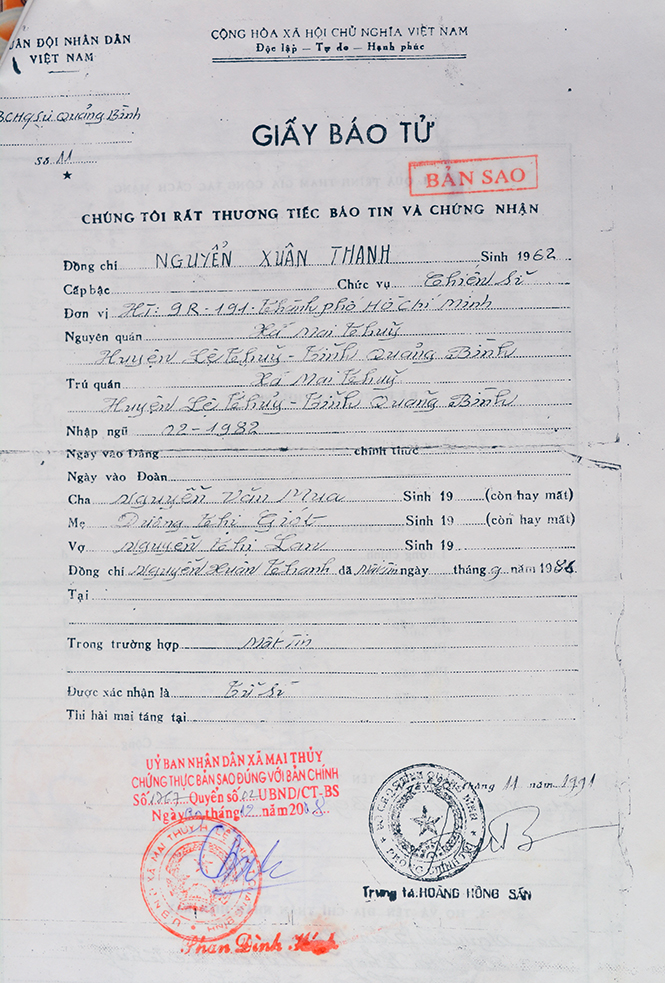 QUÂN ĐỘI NHÂN DÂN
VIỆT NAM
CỘNG HÒA XÃ HỘI CHỦ NGHĨA VIỆT NAM
Độc lập — Tự do — Hạnh phúc
BCHQSự Quảng Bình
Số 11
GIẤY BÁO TỬ
BẢN SAO
CHÚNG TÔI RẤT THƯƠNG TIẾC BÁO TIN VÀ CHỨNG NHẬN
Đồng chí NGUYỄN XUÂN THANH Sinh 1962
Cấp bậc Chức vụ Chiến sĩ
Đơn vị HT: 9R-191-Thành phố Hồ Chí Minh
Nguyên quán Xã Mai Thuỷ
Huyện Lệ Thuỷ - Tỉnh Quảng Bình
Trú quán Xã Mai Thuỷ
Huyện Lệ Thuỷ - Tỉnh Quảng Bình
Nhập ngũ 02-1982
Ngày vào Đảng chính thức
Ngày vào Đoàn
Cha Nguyễn Văn Mua Sinh 19 (còn hay mất)
Mẹ Dương Thị Giót Sinh 19 (còn hay mất)
Vợ Nguyễn Thị Lan Sinh 19
Đồng chí Nguyễn Xuân Thanh đã Mất tin ngày tháng 9 năm 198
Tại
Trong trường hợp Mất tin
Được xác nhận là Tử sĩ
Thi hài mai táng tại
UỶ BAN NHÂN DÂN XÃ MAI THỦY
CHỨNG THỰC BẢN SAO ĐÚNG VỚI BẢN CHÍNH
Số 1267 Quyển số 02 UBND/CT-BS
Ngày tháng 12 năm 2018
tháng 11 năm 1991
Trung tá. HOÀNG HỒNG SẤN
Phan Đình